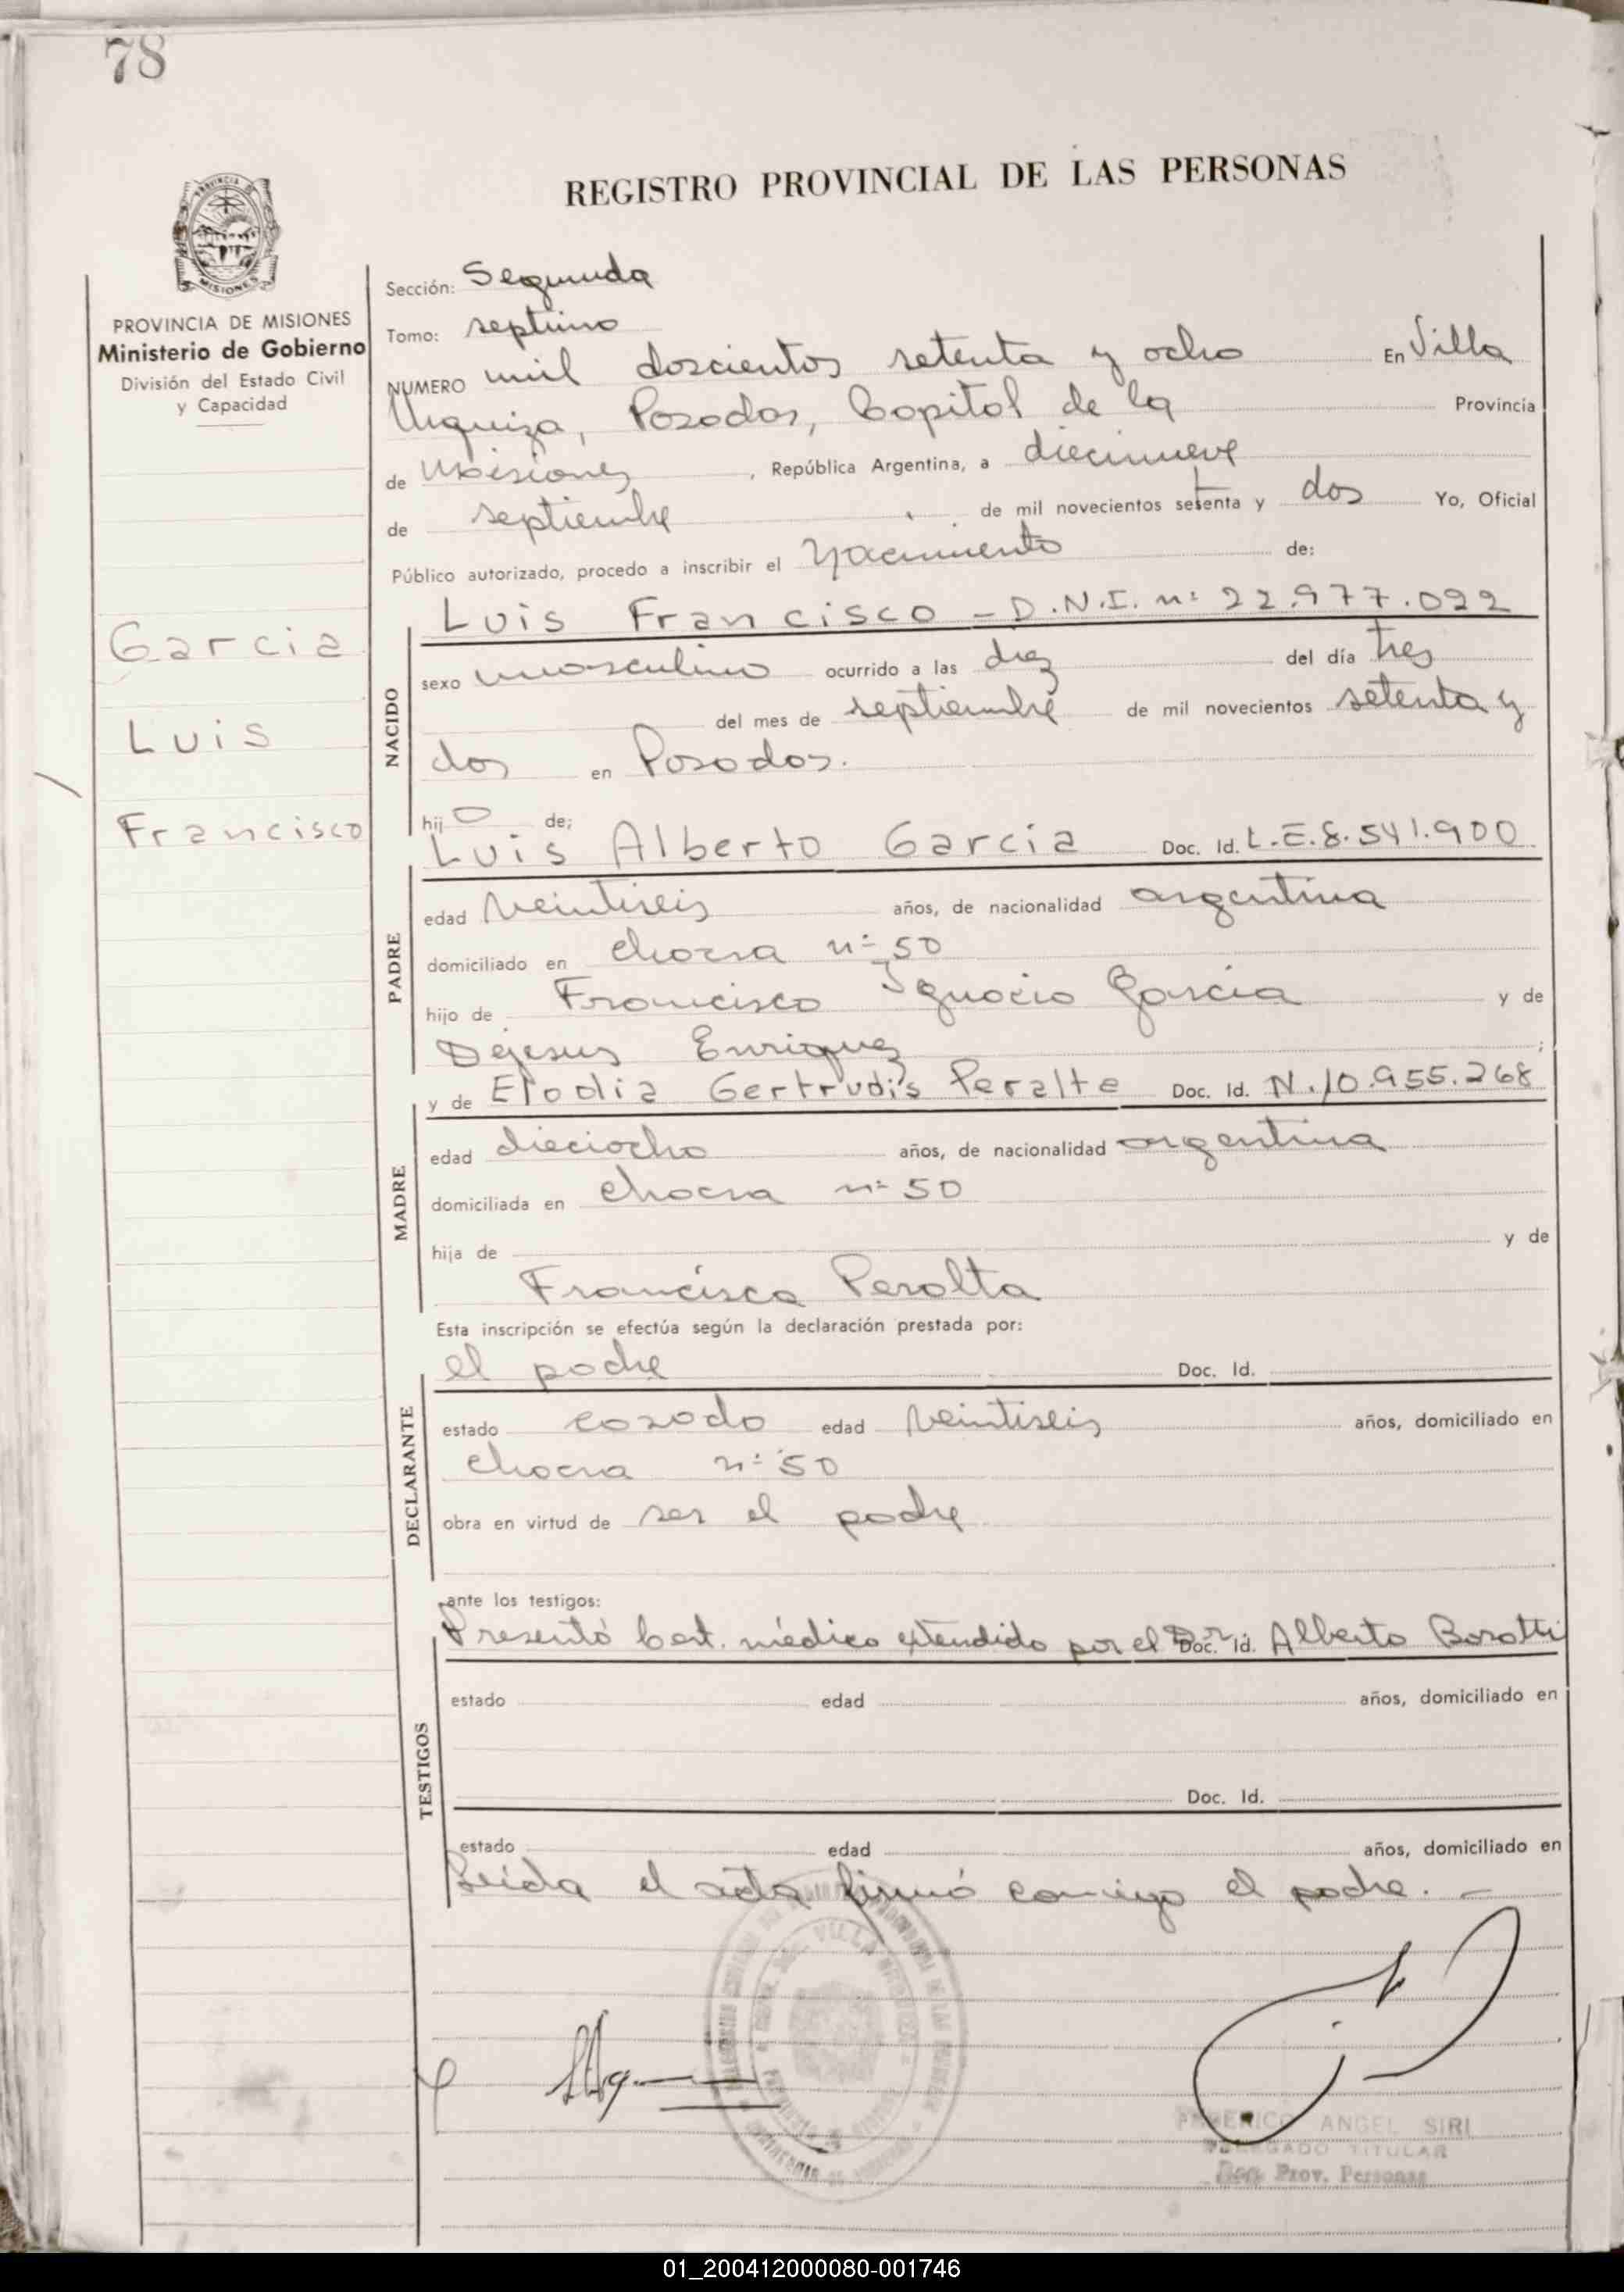 78
REGISTRO PROVINCIAL DE LAS PERSONAS
MISIONES
PROVINCIA DE MISIONES
Ministerio de Gobierno
División del Estado Civil
y Capacidad
Garcia
Luis
Francisco
Sección: Segunda
Tomo: septimo
NUMERO mil doscientos setenta y ocho En Villa
Urquiza, Posadas, Capital de la Provincia
de Misiones, República Argentina, a diecinueve
de septiembre de mil novecientos setenta y dos Yo, Oficial
Público autorizado, procedo a inscribir el Nacimiento de:
NACIDO
Luis Francisco - D.N.I. nº 22.977.092
sexo masculino ocurrido a las diez del día tres
del mes de septiembre de mil novecientos setenta y
dos en Posadas.
hijo de;
PADRE
Luis Alberto Garcia Doc. Id. L.E. 8.541.900
edad veintiseis años, de nacionalidad argentina
domiciliado en chacra nº 50
hijo de Francisco Ignacio Garcia y de
Dejesus Enriquez ;
MADRE
y de Elodia Gertrudis Peralta Doc. Id. N. 10.955.268
edad dieciocho años, de nacionalidad argentina
domiciliada en chacra nº 50
hija de y de
Francisca Peralta
Esta inscripción se efectúa según la declaración prestada por:
DECLARANTE
el padre Doc. Id.
estado casado edad veintiseis años, domiciliado en
chacra nº 50
obra en virtud de ser el padre
ante los testigos:
TESTIGOS
Presentó Cert. médico extendido por el Dr. Doc. Id. Alberto Barotti
estado edad años, domiciliado en
Doc. Id.
estado edad años, domiciliado en
Leida el acta firmó conmigo el padre. -
FEDERICO ANGEL SIRI
DELEGADO TITULAR
Reg. Prov. Personas
01_200412000080-001746